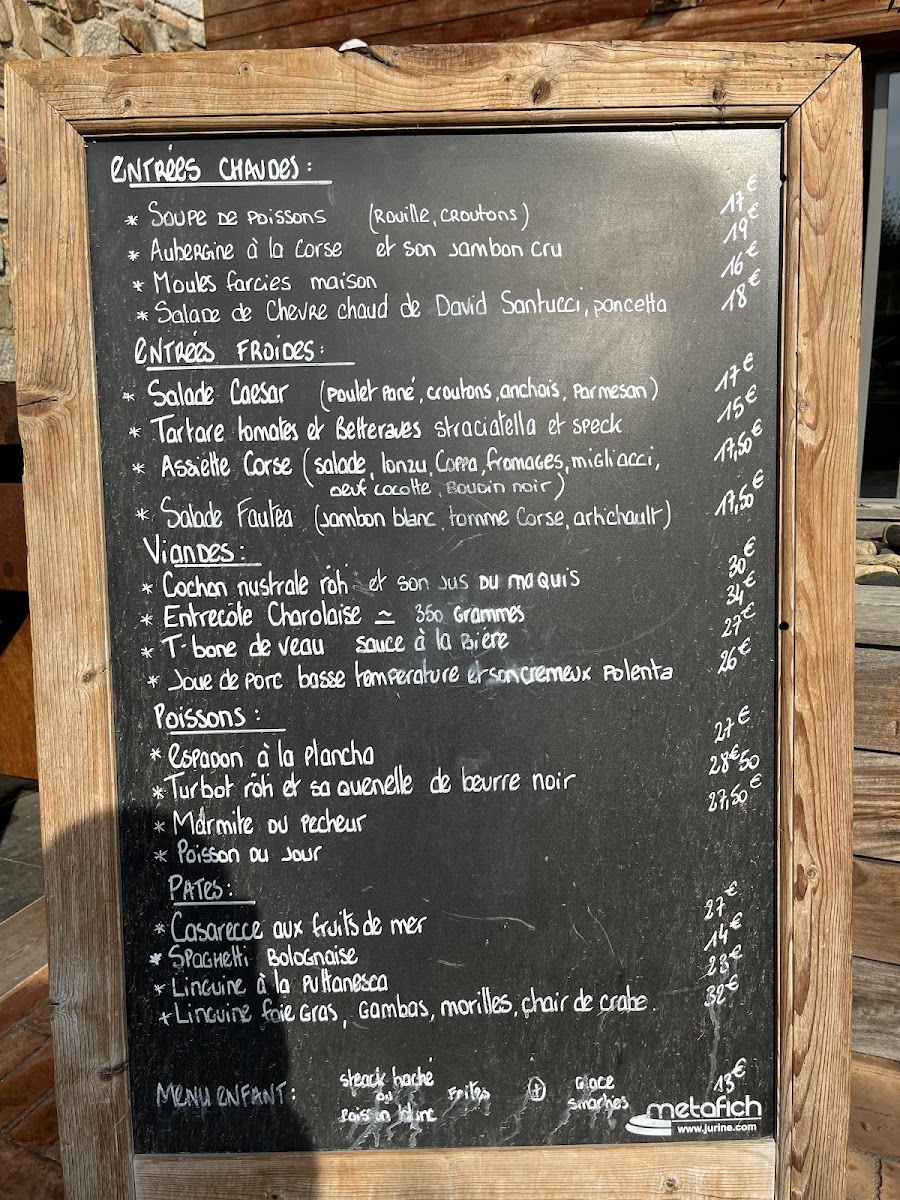 ENTRÉES CHAUDES :
* Soupe de poissons (Rouille, croutons) 17€
* Aubergine à la Corse et son jambon cru 19€
* Moules farcies maison 16€
* Salade de Chevre chaud de David Santucci, pancetta 18€
ENTRÉES FROIDES :
* Salade Caesar (poulet pané, croutons, anchois, parmesan) 17€
* Tartare tomates et Betteraves straciatella et speck 15€
* Assiette Corse (salade, lonzu, Coppa, fromages, migliacci, 17,50€
oeuf cocotte, Boudin noir)
* Salade Fautea (jambon blanc, tomme Corse, artichault) 17,50€
VIANDES :
* Cochon nustrale rôti et son jus du maquis 30€
* Entrecôte Charolaise ≃ 350 Grammes 34€
* T-bone de veau sauce à la Bière 27€
* Joue de porc basse temperature et son cremeux polenta 26€
Poissons :
* Espadon à la plancha 27€
* Turbot rôti et sa quenelle de beurre noir 28€50
* Marmite du pecheur 27,50€
* Poisson du jour
PATES :
* Casarecce aux fruits de mer 27€
* Spaghetti Bolognaise 14€
* Linguine à la puttanesca 23€
* Linguine foie gras, gambas, morilles, chair de crabe. 32€
MENU ENFANT : steack haché ou poisson blanc Frites + Glace smarties 13€
metafich
www.jurine.com